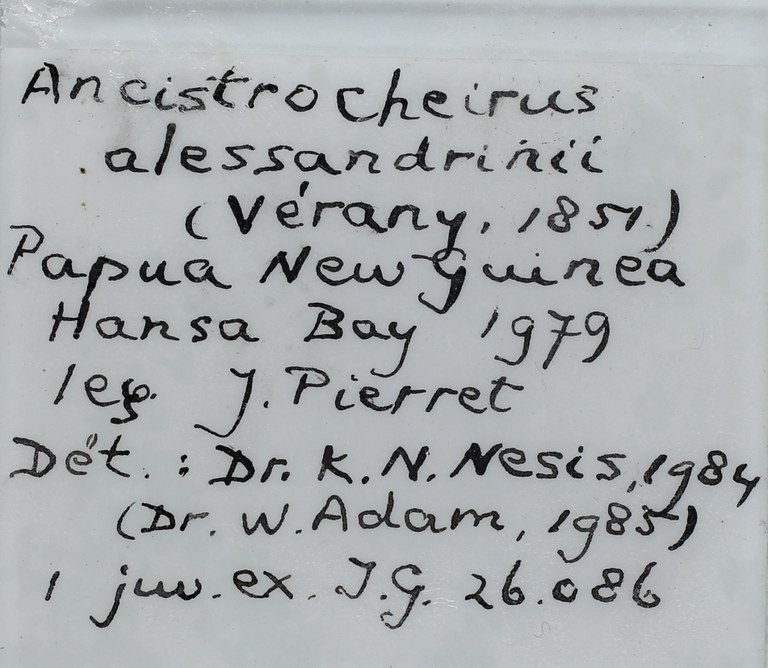 Ancistrocheirus
alessandrinii
(Vérany, 1851)
Papua New Guinea
Hansa Bay 1979
leg. J. Pierret
Dét. : Dr. K. N. Nesis, 1984
(Dr. W. Adam, 1985)
1 juv. ex. I.G. 26.086